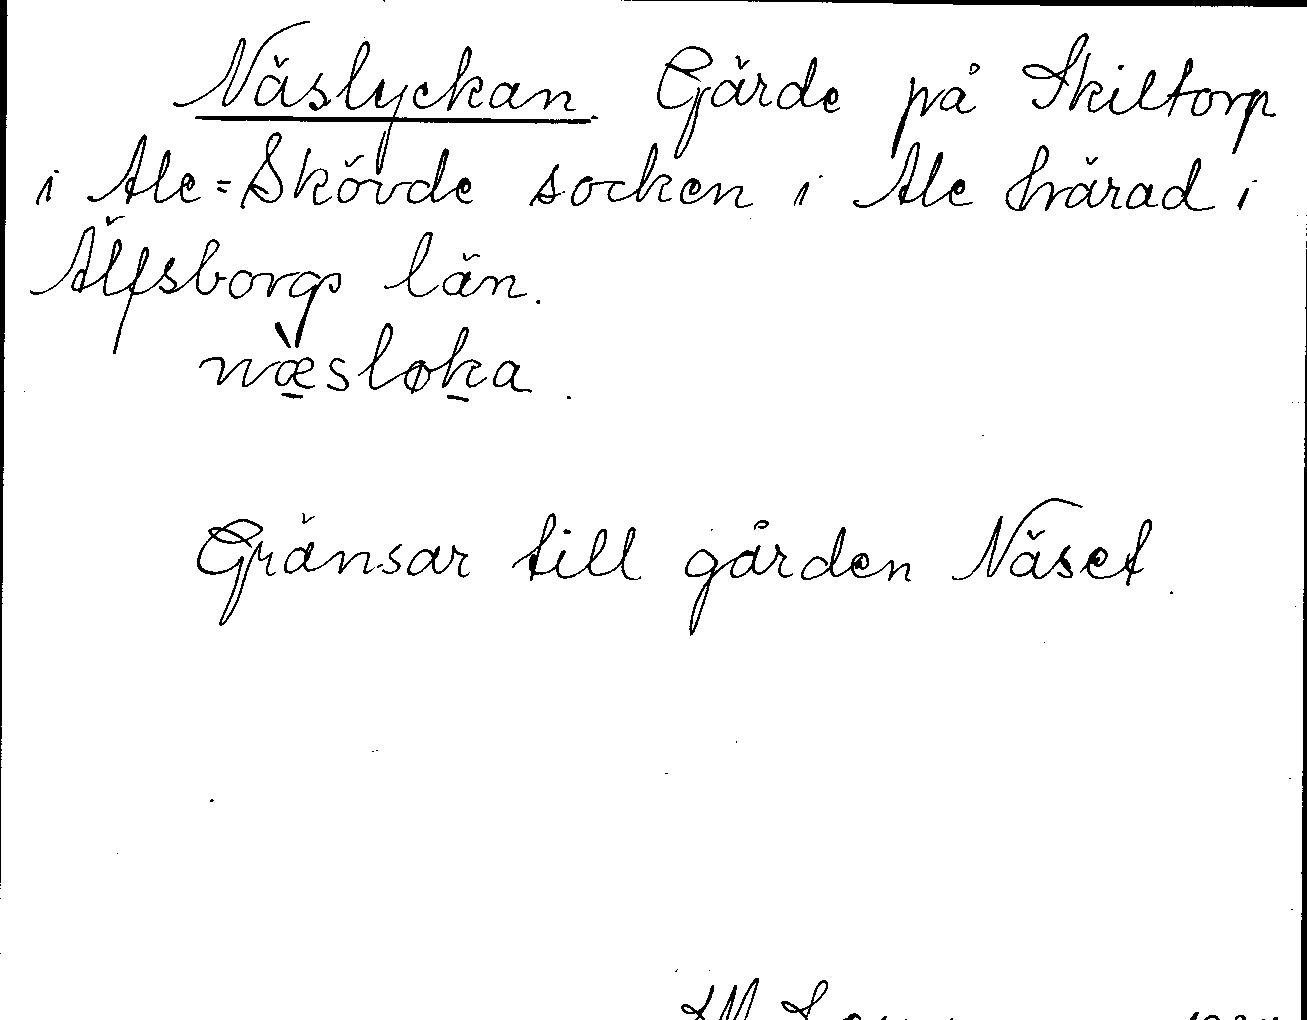 Näslyckan Gärde på Skiltorp
i Ale=Skövde socken i Ale härad i
Älfsborgs län.
næsløka.
Gränsar till gården Näset.